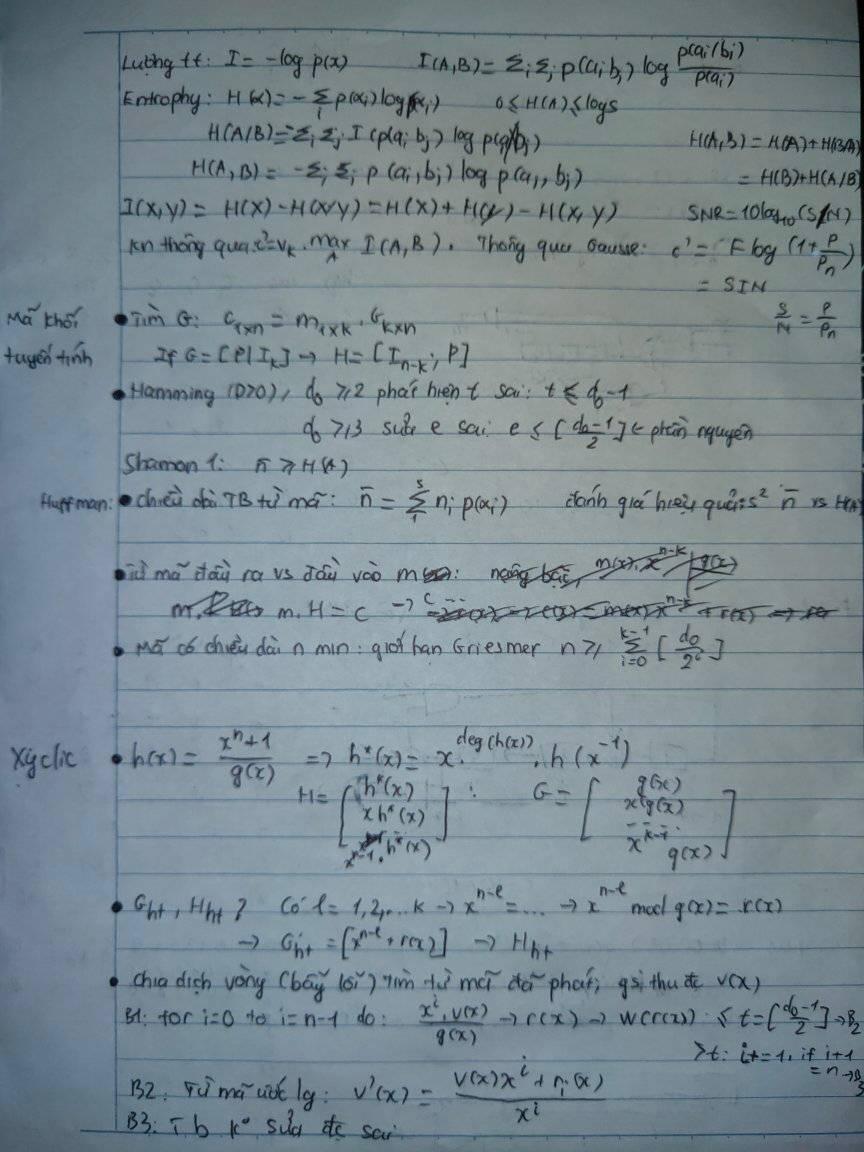 Lượng tt: I = -log p(x) I(A,B) = Σi Σj p(ai bj) log p(ai/bj)/p(ai)
Entrophy: H(x) = -Σi p(xi) log(xi) 0 ≤ H(A) ≤ log s
H(A/B) = -Σi Σj I(p(ai bj) log p(a/bj) H(A,B) = H(A)+H(B/A)
H(A,B) = -Σi Σj p(ai, bj) log p(ai, bj) = H(B)+H(A/B)
I(X,Y) = H(X) - H(X/Y) = H(X) + H(Y) - H(X,Y) SNR = 10log10(S/N)
Kn thông qua: c' = Vk. max A I(A,B). Thông qua Gausse: c' = F log (1+ P/Pn)
= SIN
Mã khối • Tìm G: C1xn = m1xk . Gkxn S/N = P/Pn
tuyến tính If G = [P|Ik] → H = [In-k ; P]
• Hamming (D>0), d0 ≥ 2 phát hiện t sai: t ≤ d0-1
d0 ≥ 3 sửa e sai: e ≤ [(d0-1)/2] ← phần nguyên
Shamon 1: n̄ ≥ H(A)
Huffman: • chiều dài TB từ mã: n̄ = Σ1^s ni p(xi) đánh giá hiệu quả: s² n̄ vs H(A)
• Từ mã đầu ra vs đầu vào m:
m.H = C →
• Mã có chiều dài n min: giới hạn Griesmer n ≥ Σ_{i=0}^{k-1} [d0/2^i]
Xyclic • h(x) = (x^n+1)/g(x) => h*(x) = x^{deg(h(x))} . h(x^-1)
H = [h*(x) ; G = [g(x)
x h*(x) x g(x)
x^{n-1}.h*(x)] x^{k-1}. g(x)]
• Ght, Hht ? Có l = 1,2,...k → x^{n-l} = ... → x^{n-l} mod g(x) = r(x)
→ Ght = [x^{n-l} + r(x)] → Hht
• Chia dịch vòng (bẫy lỗi) Tìm từ mã đã phát; gs thu đc v(x)
B1: for i=0 to i=n-1 do: x^i.v(x)/g(x) → r(x) → W(r(x)) ≤ t = [(d0-1)/2] → B2
>t: i+=1, if i+1
= n → B3
B2: Từ mã ước lg: v'(x) = (v(x)x^i + ri(x))/x^i
B3: T b k° sửa đc sai